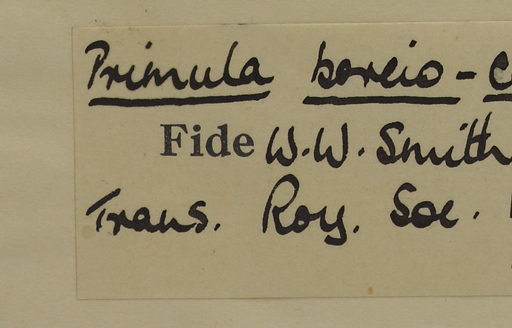 Primula boreio-c
Fide W.W. Smith
Trans. Roy. Soc.